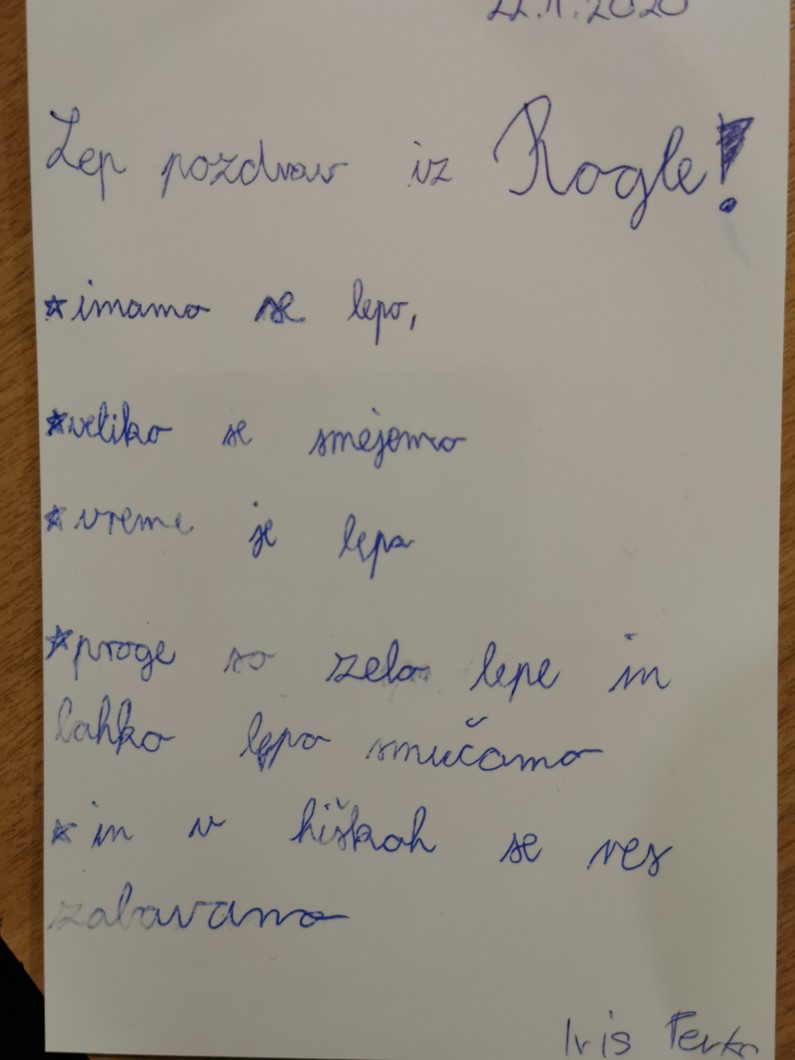 22.1.2020
Lep pozdrav iz Rogle!
*imamo se lepo,
*veliko se smejemo
*vreme je lepo
*proge so zelo lepe in
lahko lepo smučamo
*in v hiškah se res
zabavamo
Iris